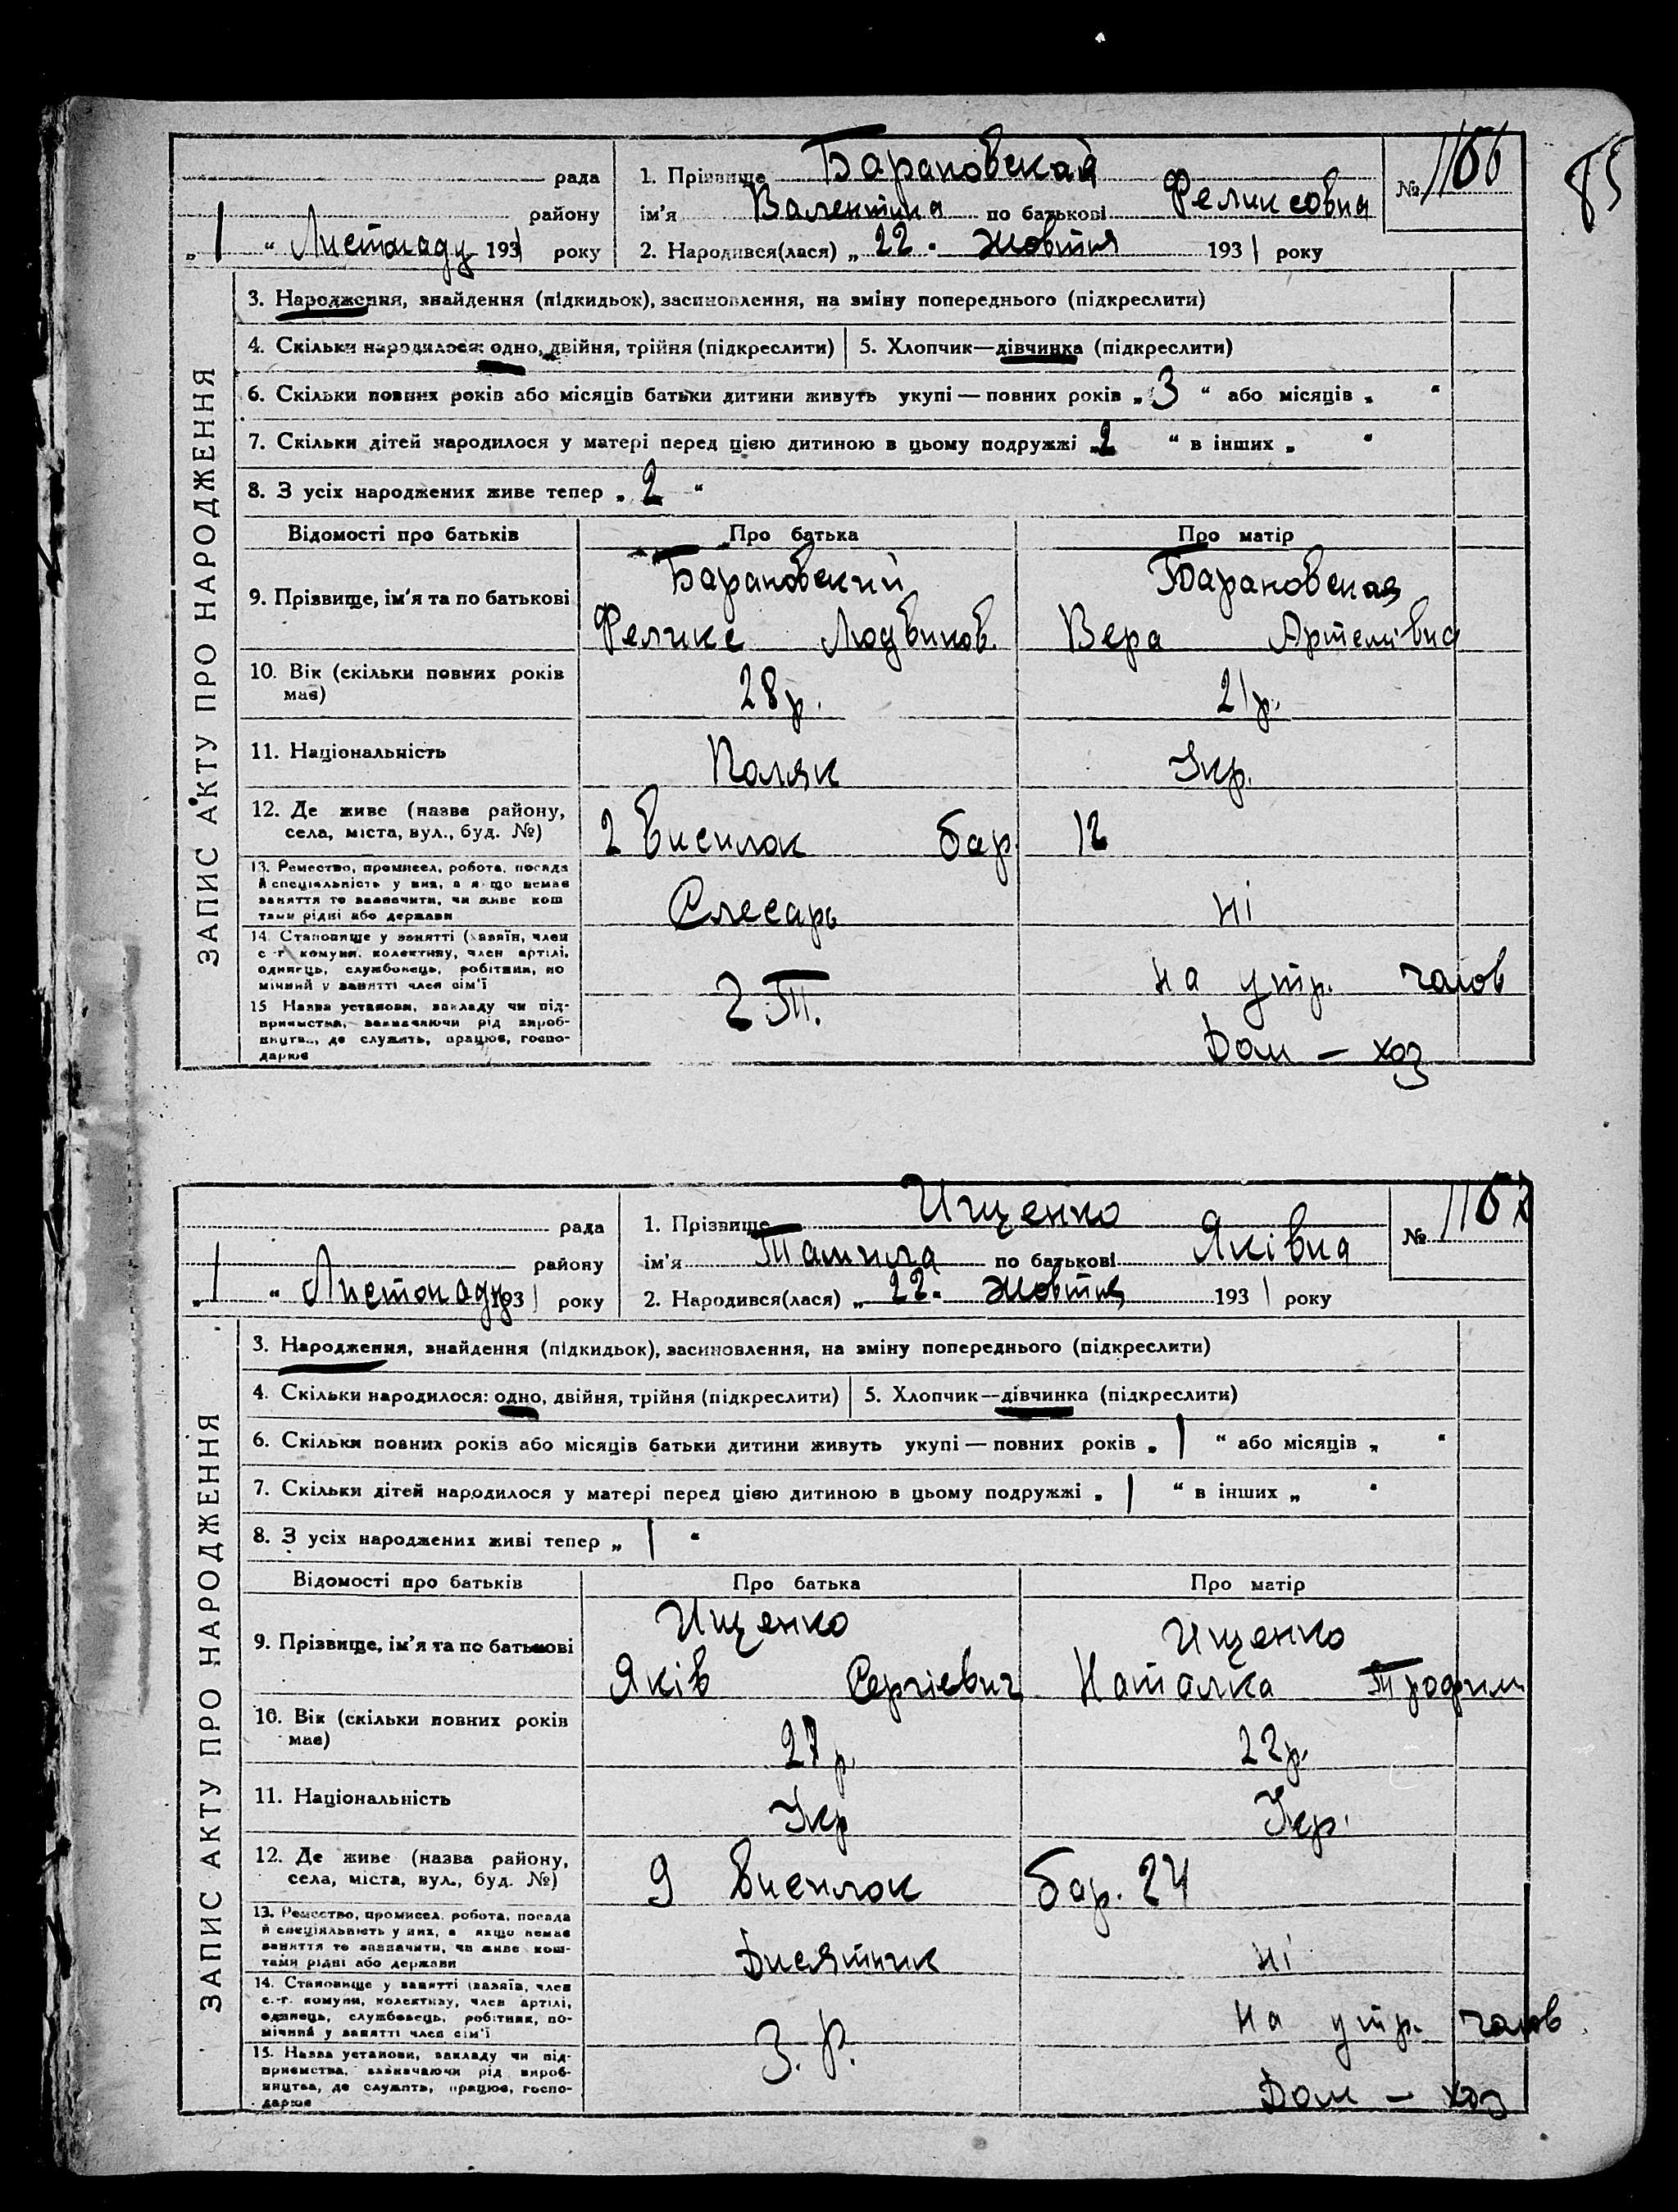 85
рада
1. Прізвище Барановская
№ 1166
району
ім'я Валентина по батькові Феликсовна
„ 1 “ Листопаду 1931 року
2. Народився(лася) „ 22. Жовтня 1931 року
ЗАПИС АКТУ ПРО НАРОДЖЕННЯ
3. Народження, знайдення (підкидьок), засиновлення, на зміну попереднього (підкреслити)
4. Скільки народилося: одно, двійня, трійня (підкреслити)
5. Хлопчик—дівчинка (підкреслити)
6. Скільки повних років або місяців батьки дитини живуть укупі — повних років „ 3 “ або місяців „ “
7. Скільки дітей народилося у матері перед цією дитиною в цьому подружжі „ 2 “ в інших „ “
8. З усіх народжених живе тепер „ 2 “
Відомості про батьків
Про батька
Про матір
9. Прізвище, ім'я та по батькові
Барановский
Феликс Людвиков.
Барановская
Вера Артемівна
10. Вік (скільки повних років
має)
28 р.
21 р.
11. Національність
Поляк
Укр.
12. Де живе (назва району,
села, міста, вул., буд. №)
2 виселок бар 12
13. Ремество, промисел, робота, посада
й спеціяльність у них, а якщо немає
заняття то зазначити, чи живе кош
тами рідні або держави
Слесарь
ні
14. Становище у занятті (хазяїн, член
с.-г. комуни, колективу, член артілі,
одинець, службовець, робітник, по
мічний у занятті член сім'ї
на утр. чалов
15 Назва установи, закладу чи під-
приємства, зазначаючи рід вироб-
ництва, де служить, працює, госпо-
дарює
2 Т.
Дом — хоз
рада
1. Прізвище Ищенко
№ 1167
району
ім'я Тамила по батькові Яківна
„ 1 “ Листопаду 1931 року
2. Народився(лася) „ 22. Жовтня 1931 року
ЗАПИС АКТУ ПРО НАРОДЖЕННЯ
3. Народження, знайдення (підкидьок), засиновлення, на зміну попереднього (підкреслити)
4. Скільки народилося: одно, двійня, трійня (підкреслити)
5. Хлопчик—дівчинка (підкреслити)
6. Скільки повних років або місяців батьки дитини живуть укупі — повних років „ 1 “ або місяців „ “
7. Скільки дітей народилося у матері перед цією дитиною в цьому подружжі „ 1 “ в інших „ “
8. З усіх народжених живі тепер „ 1 “
Відомості про батьків
Про батька
Про матір
9. Прізвище, ім'я та по батькові
Ищенко
Яків Сергієвич
Ищенко
Наталка Трофим
10. Вік (скільки повних років
має)
27 р.
22 р.
11. Національність
Укр
Укр.
12. Де живе (назва району,
села, міста, вул., буд. №)
9 виселок бар. 24
13. Ремество, промисел, робота, посада
й спеціяльність у них, а якщо немає
заняття то зазначити, чи живе кош-
тами рідні або держави
Дисятник
ні
14. Становище у занятті (хазяїн, член
с.-г. комуни, колективу, член артілі,
одинець, службовець, робітник, по-
мічний у занятті член сім'ї
на утр. чалов
15. Назва установи, закладу чи під-
приємства, зазначаючи рід вироб-
ництва, де служить, працює, госпо-
дарює
З. Р.
Дом — хоз